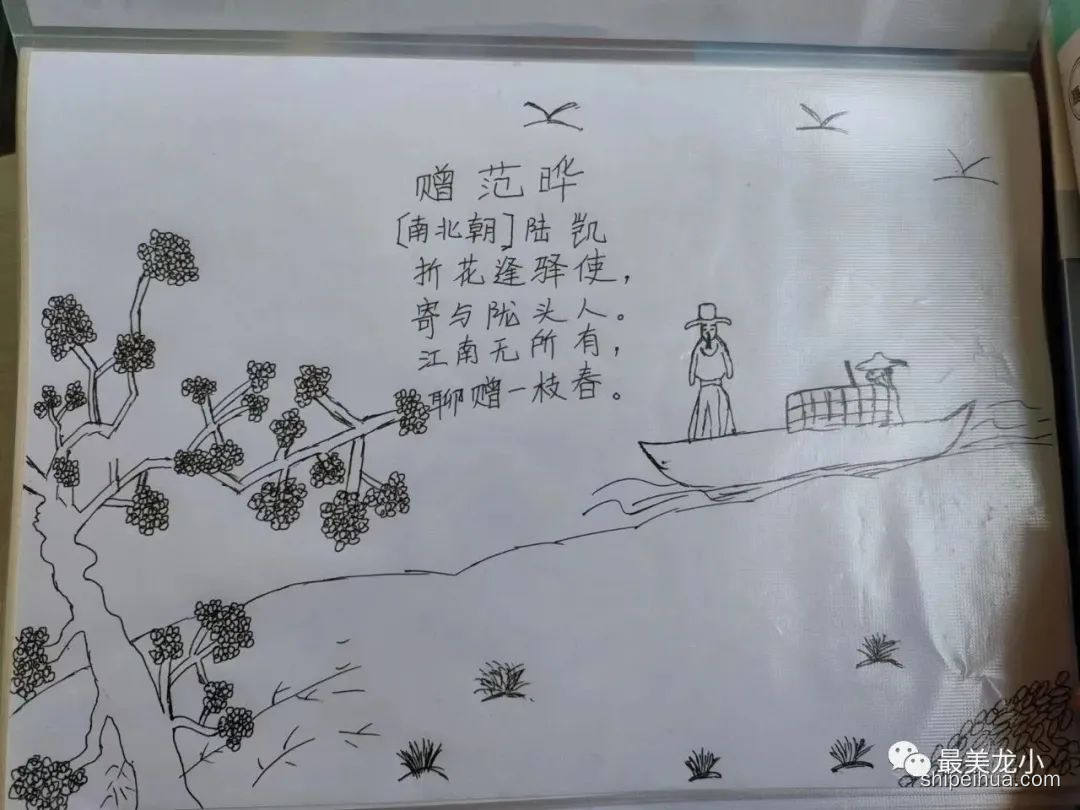 赠范晔
[南北朝]陆凯
折花逢驿使，
寄与陇头人。
江南无所有，
聊赠一枝春。
最美龙小
shipeihua.com